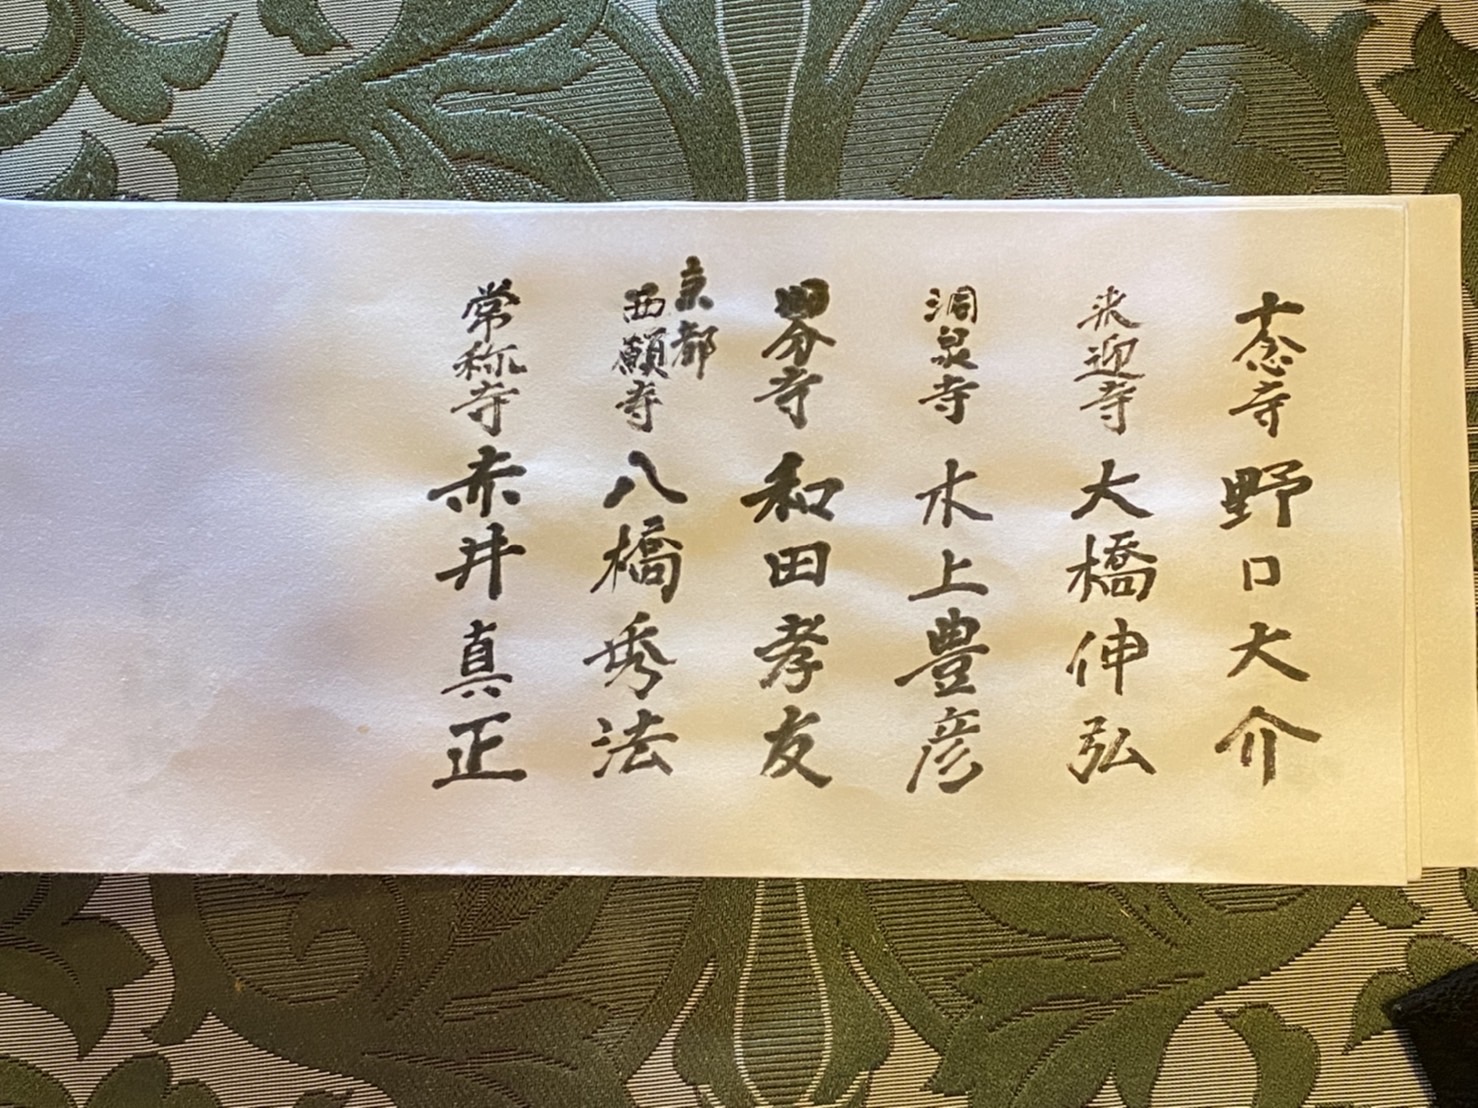 十念寺 野口大介
来迎寺 大橋伸弘
洞泉寺 水上豊彦
寺 和田孝友
京都
西願寺 八橋秀法
常称寺 赤井真正